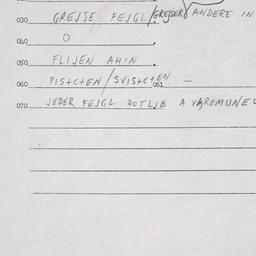 030 GREJSE FEJGL/GREJSER ANDERE IN
040 O
050 FLIJEN AHIN.
060 PISTCTEN/SVISTCTEN —
061
070 JEDER FEJGL HOTLIB A VAREMUNES